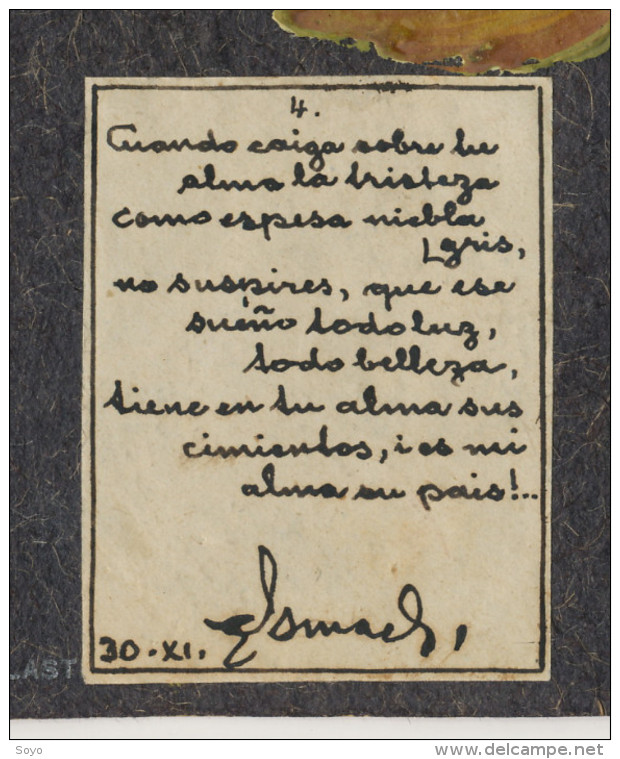 4.
Cuando caiga sobre tu
alma la tristeza
como espesa niebla
gris,
no suspires, que ese
sueño todo luz,
todo belleza,
tiene en tu alma sus
cimientos, i es mi
alma su pais!..
30-XI.
LAST
Soyo
delcampe.net